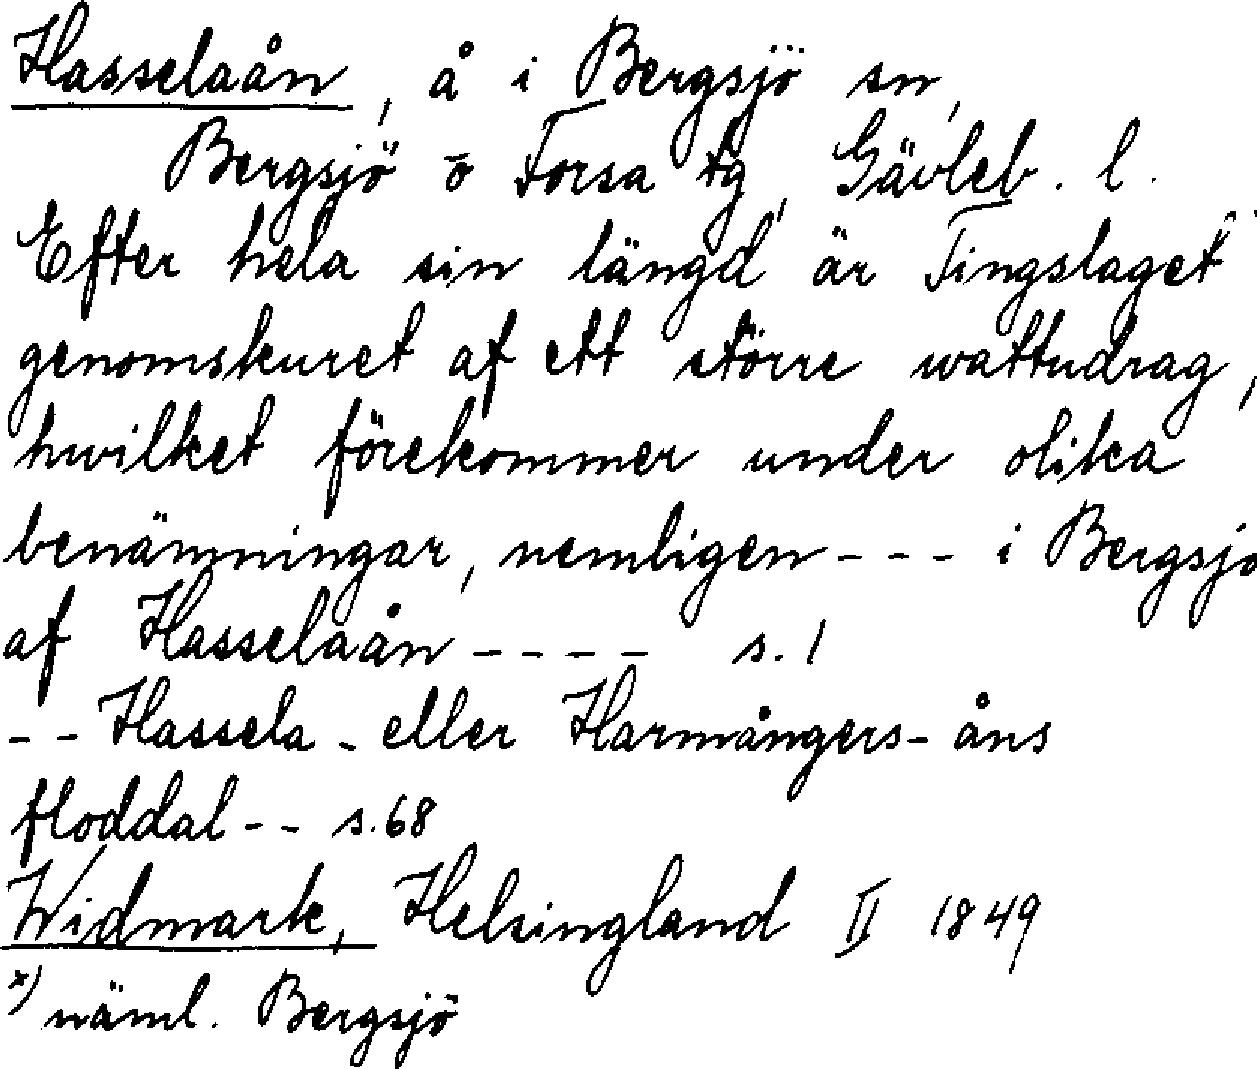 Hasselaån, å i Bergsjö sn,
Bergsjö o Forsa tg, Gävleb. l.
Efter hela sin längd är Tingslaget
genomskuret af ett större wattudrag,
hwilket förekommer under olika
benämningar, nemligen - - - i Bergsjö
af Hasselaån - - - - s. 1
- - Hassela - eller Harmångers-åns
floddal - - s. 68
Widmark, Helsingland II 1849
x) näml. Bergsjö